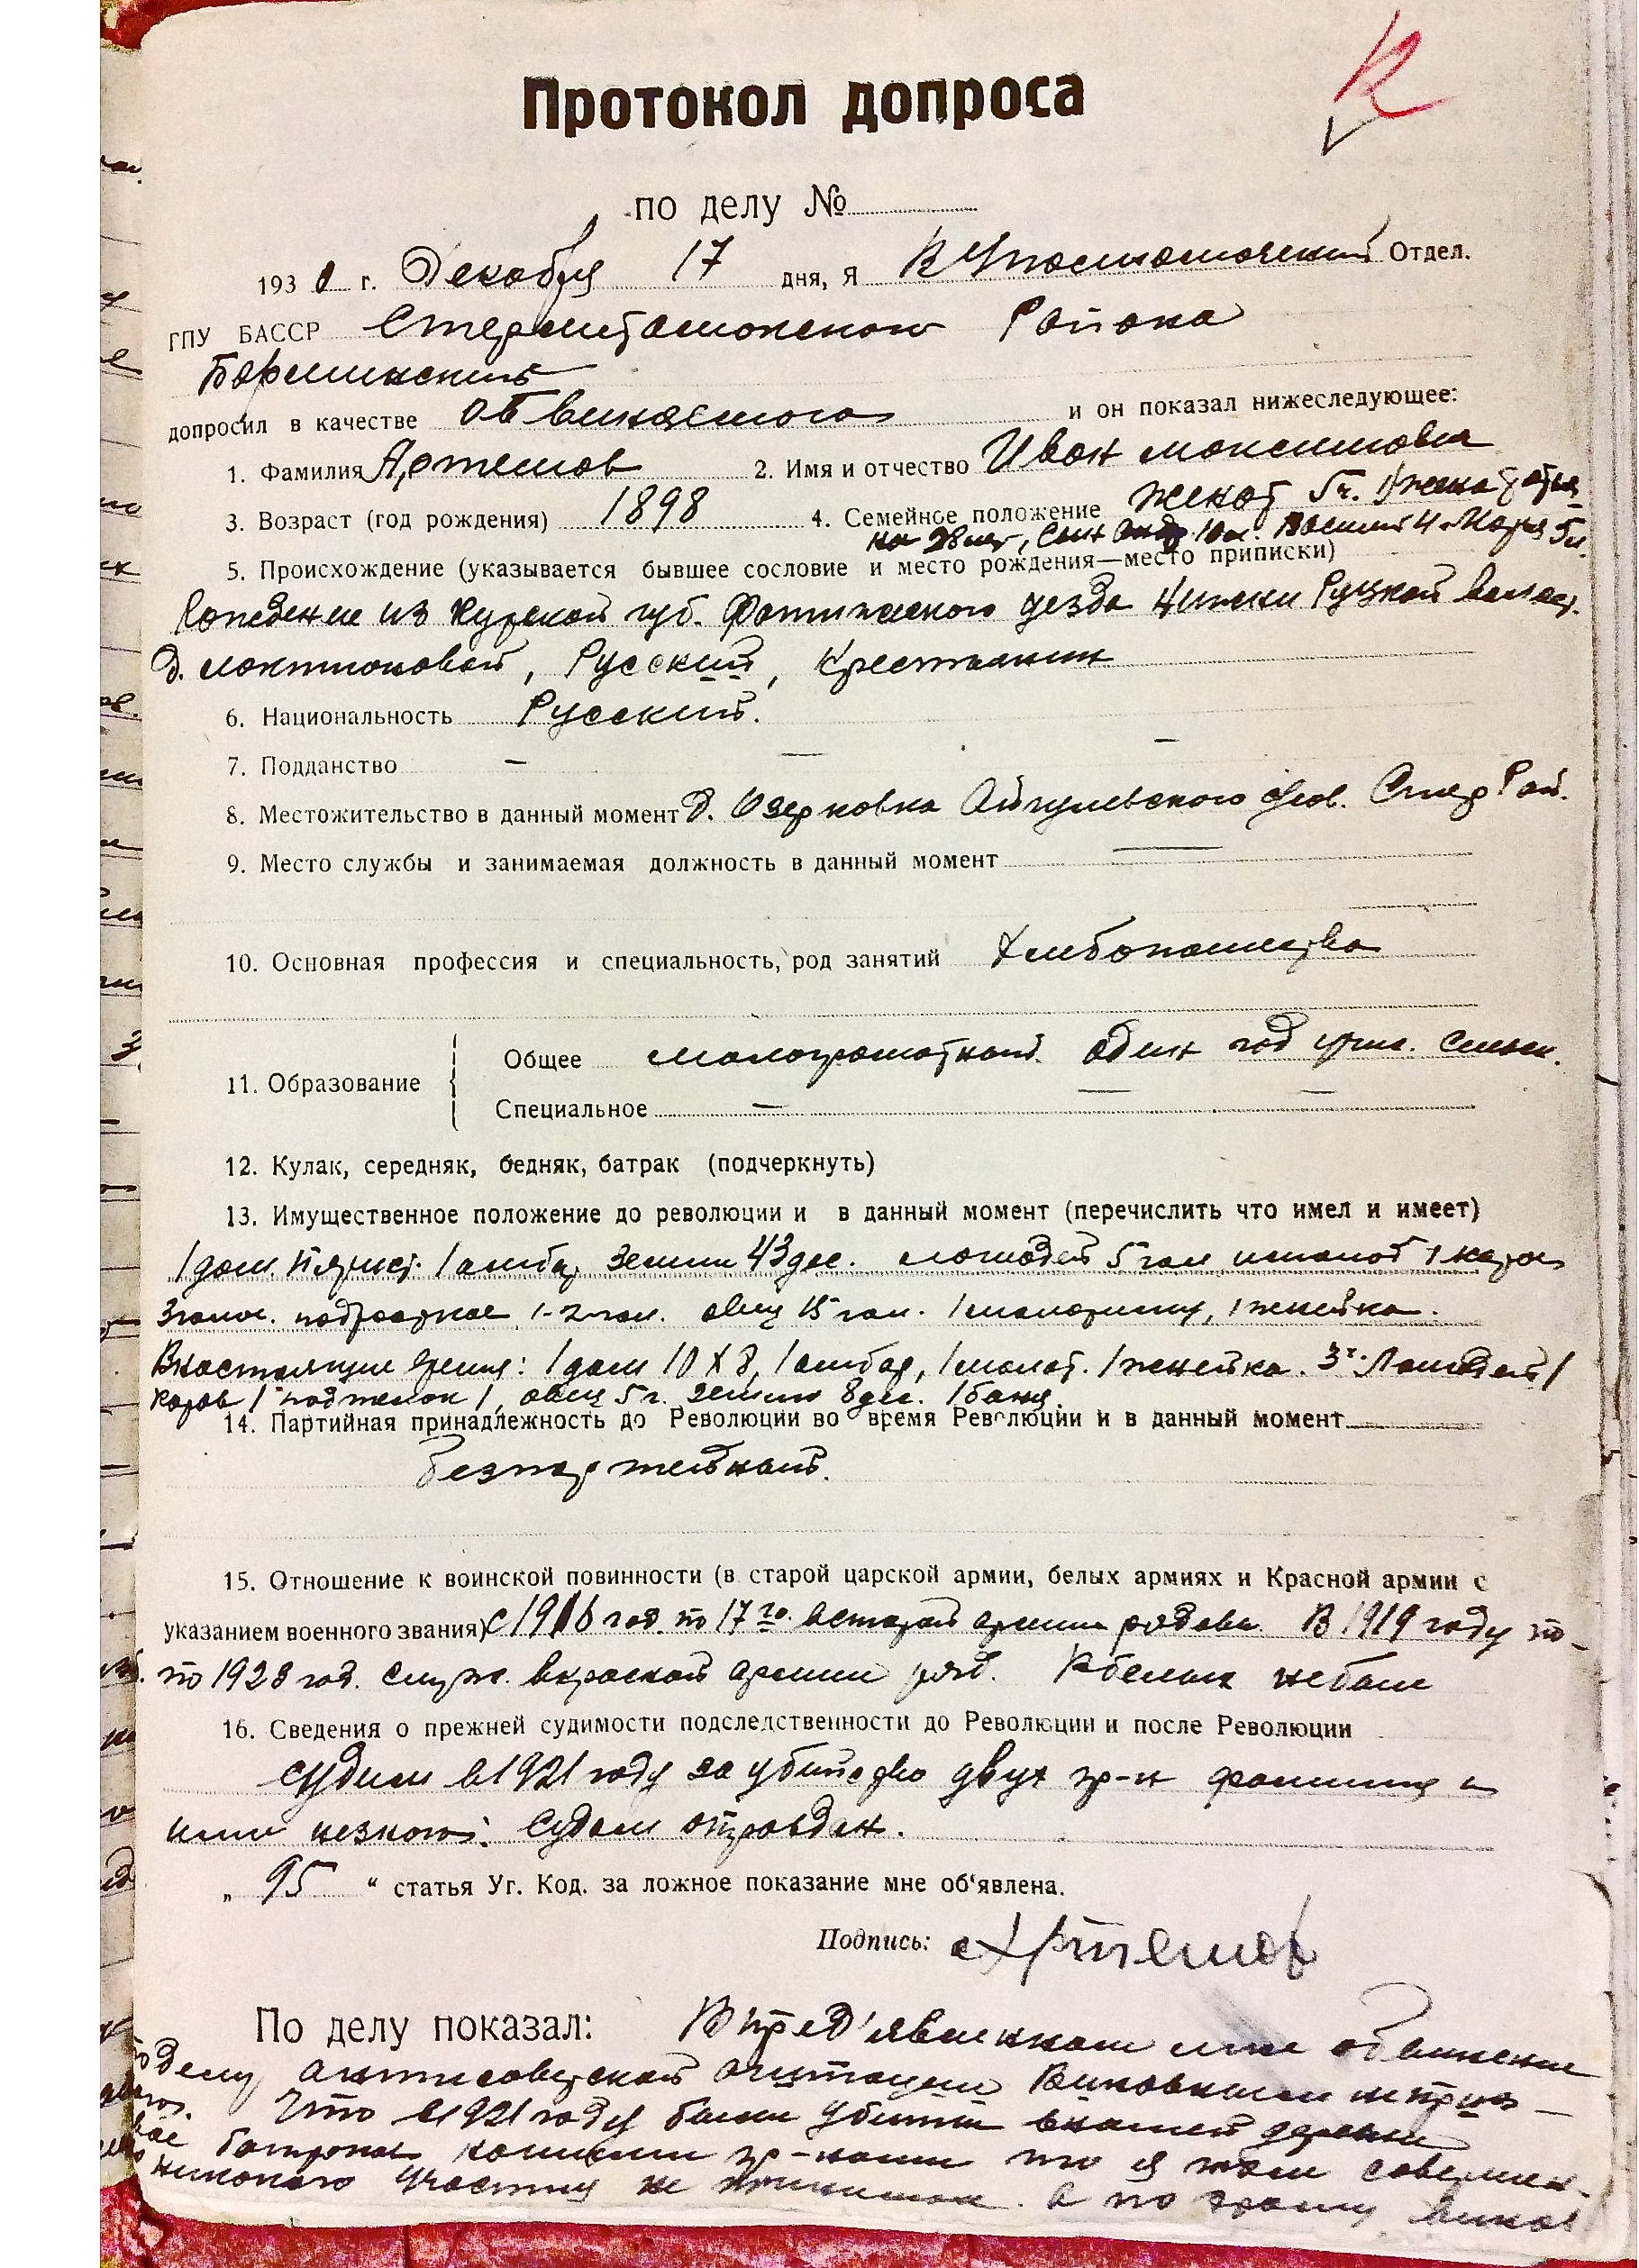 Протокол допроса
по делу №
1930 г. Декабря 17 дня, я Отдел.
ГПУ БАССР Стерлитамакского Района
допросил в качестве обвиняемого и он показал нижеследующее:
1. Фамилия Артемов 2. Имя и отчество Иван Максимович
3. Возраст (год рождения) 1898 4. Семейное положение женат 5 ч. жена
28 лет, сын 10 л. 4 Мария 5 л.
5. Происхождение (указывается бывшее сословие и место рождения—место приписки)
из Курской губ. уезда
д. Локтионовой, Русский, Крестьянин
6. Национальность Русский.
7. Подданство — — —
8. Местожительство в данный момент д. Озерковка Айгулевского Стер Рай.
9. Место службы и занимаемая должность в данный момент —
10. Основная профессия и специальность, род занятий Хлибопашество
11. Образование
Общее малограмотный. один год
Специальное — — —
12. Кулак, середняк, бедняк, батрак (подчеркнуть)
13. Имущественное положение до революции и в данный момент (перечислить что имел и имеет)
1 дом 1 амбар земли 43 дес. лошадей 5 гол 1 коров
3 голов. 1-2 гол. овец 15 гол. 1 1 жнейка.
В настоящие время: 1 дом 10 х 8, 1 амбар, 1 молот. 1 жнейка. 3 Лошадей 1
коров 1 1, овец 5 г. земли 8 дес. 1 баня.
14. Партийная принадлежность до Революции во время Революции и в данный момент
безпартейный.
15. Отношение к воинской повинности (в старой царской армии, белых армиях и Красной армии с
указанием военного звания) с 1916 год. по 17 го. в старой армии рядовы. В 1919 году по-
по 1923 год. служ. в красной армии ряд. У белых не был
16. Сведения о прежней судимости подследственности до Революции и после Революции
судим в 1921 году за убийство двух гр-н фамилия и
имя незнаю. Судом оправдан.
„ 95 “ статья Уг. Код. за ложное показание мне об‘явлена.
Подпись: Артемов
По делу показал: В пред'явленном мне обвинение
по делу антисоветской агитации Виновным не приз-
Что в 1921 году были убиты в нашей деревни
гр-нами то я там совершен-
никокого участия не принимал. а по этому винов